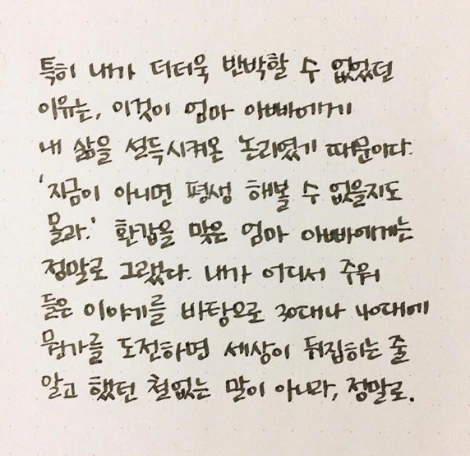 특히 내가 더더욱 반박할 수 없었던
이유는, 이것이 엄마 아빠에게
내 삶을 설득시켜온 논리였기 때문이다.
'지금이 아니면 평생 해볼 수 없을지도
몰라.' 환갑을 맞은 엄마 아빠에게는
정말로 그랬다. 내가 어디서 주워
들은 이야기를 바탕으로 30대나 40대에
뭔가를 도전하면 세상이 뒤집히는 줄
알고 했던 철없는 말이 아니라, 정말로.